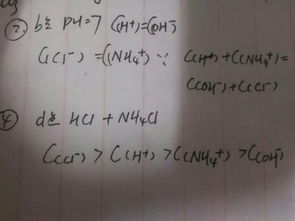 ② b点 PH=7 C(H⁺)=C(OH⁻)
C(Cl⁻) =C(NH₄⁺) ∵ C(H⁺)+C(NH₄⁺)=
C(OH⁻)+C(Cl⁻)
④ d点 HCl + NH₄Cl
C(Cl⁻) > C(H⁺) > C(NH₄⁺) > C(OH⁻)